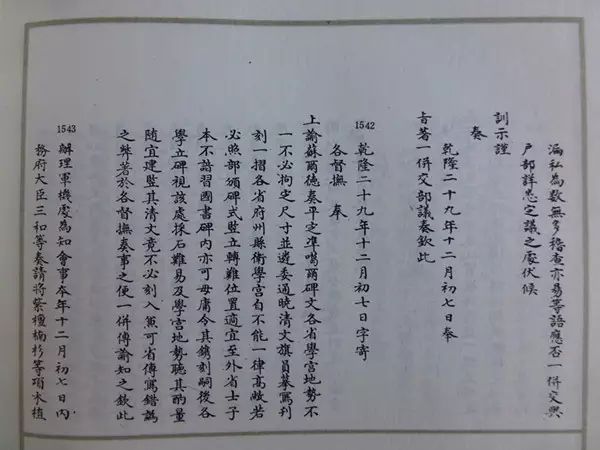 漏私為數無多稽查亦易等語應否一併交與
戶部詳悉定議之處伏候
訓示謹
奏
乾隆二十九年十二月初七日奉
旨著一併交部議奏欽此
1542
乾隆二十九年十二月初七日字寄
各督撫 奉
上諭蘇爾德奏平定準噶爾碑文各省學宮地勢不
一不必拘定尺寸並遴委通曉清文旗員摹寫刊
刻一摺各省府州縣衛學宮自不能一律高敞若
必照部頒碑式豎立轉難位置適宜至外省士子
本不諳習國書碑內亦可毋庸令其鐫刻嗣後各
學立碑視該處採石難易及學宮地勢聽其酌量
隨宜建豎其清文竟不必刻入無可省傳寫錯譌
之弊著於各督撫奏事之便一併傳諭知之欽此
1543
辦理軍機處為知會事本年十二月初七日內
務府大臣三和等奏請將紫檀楠杉等項木植